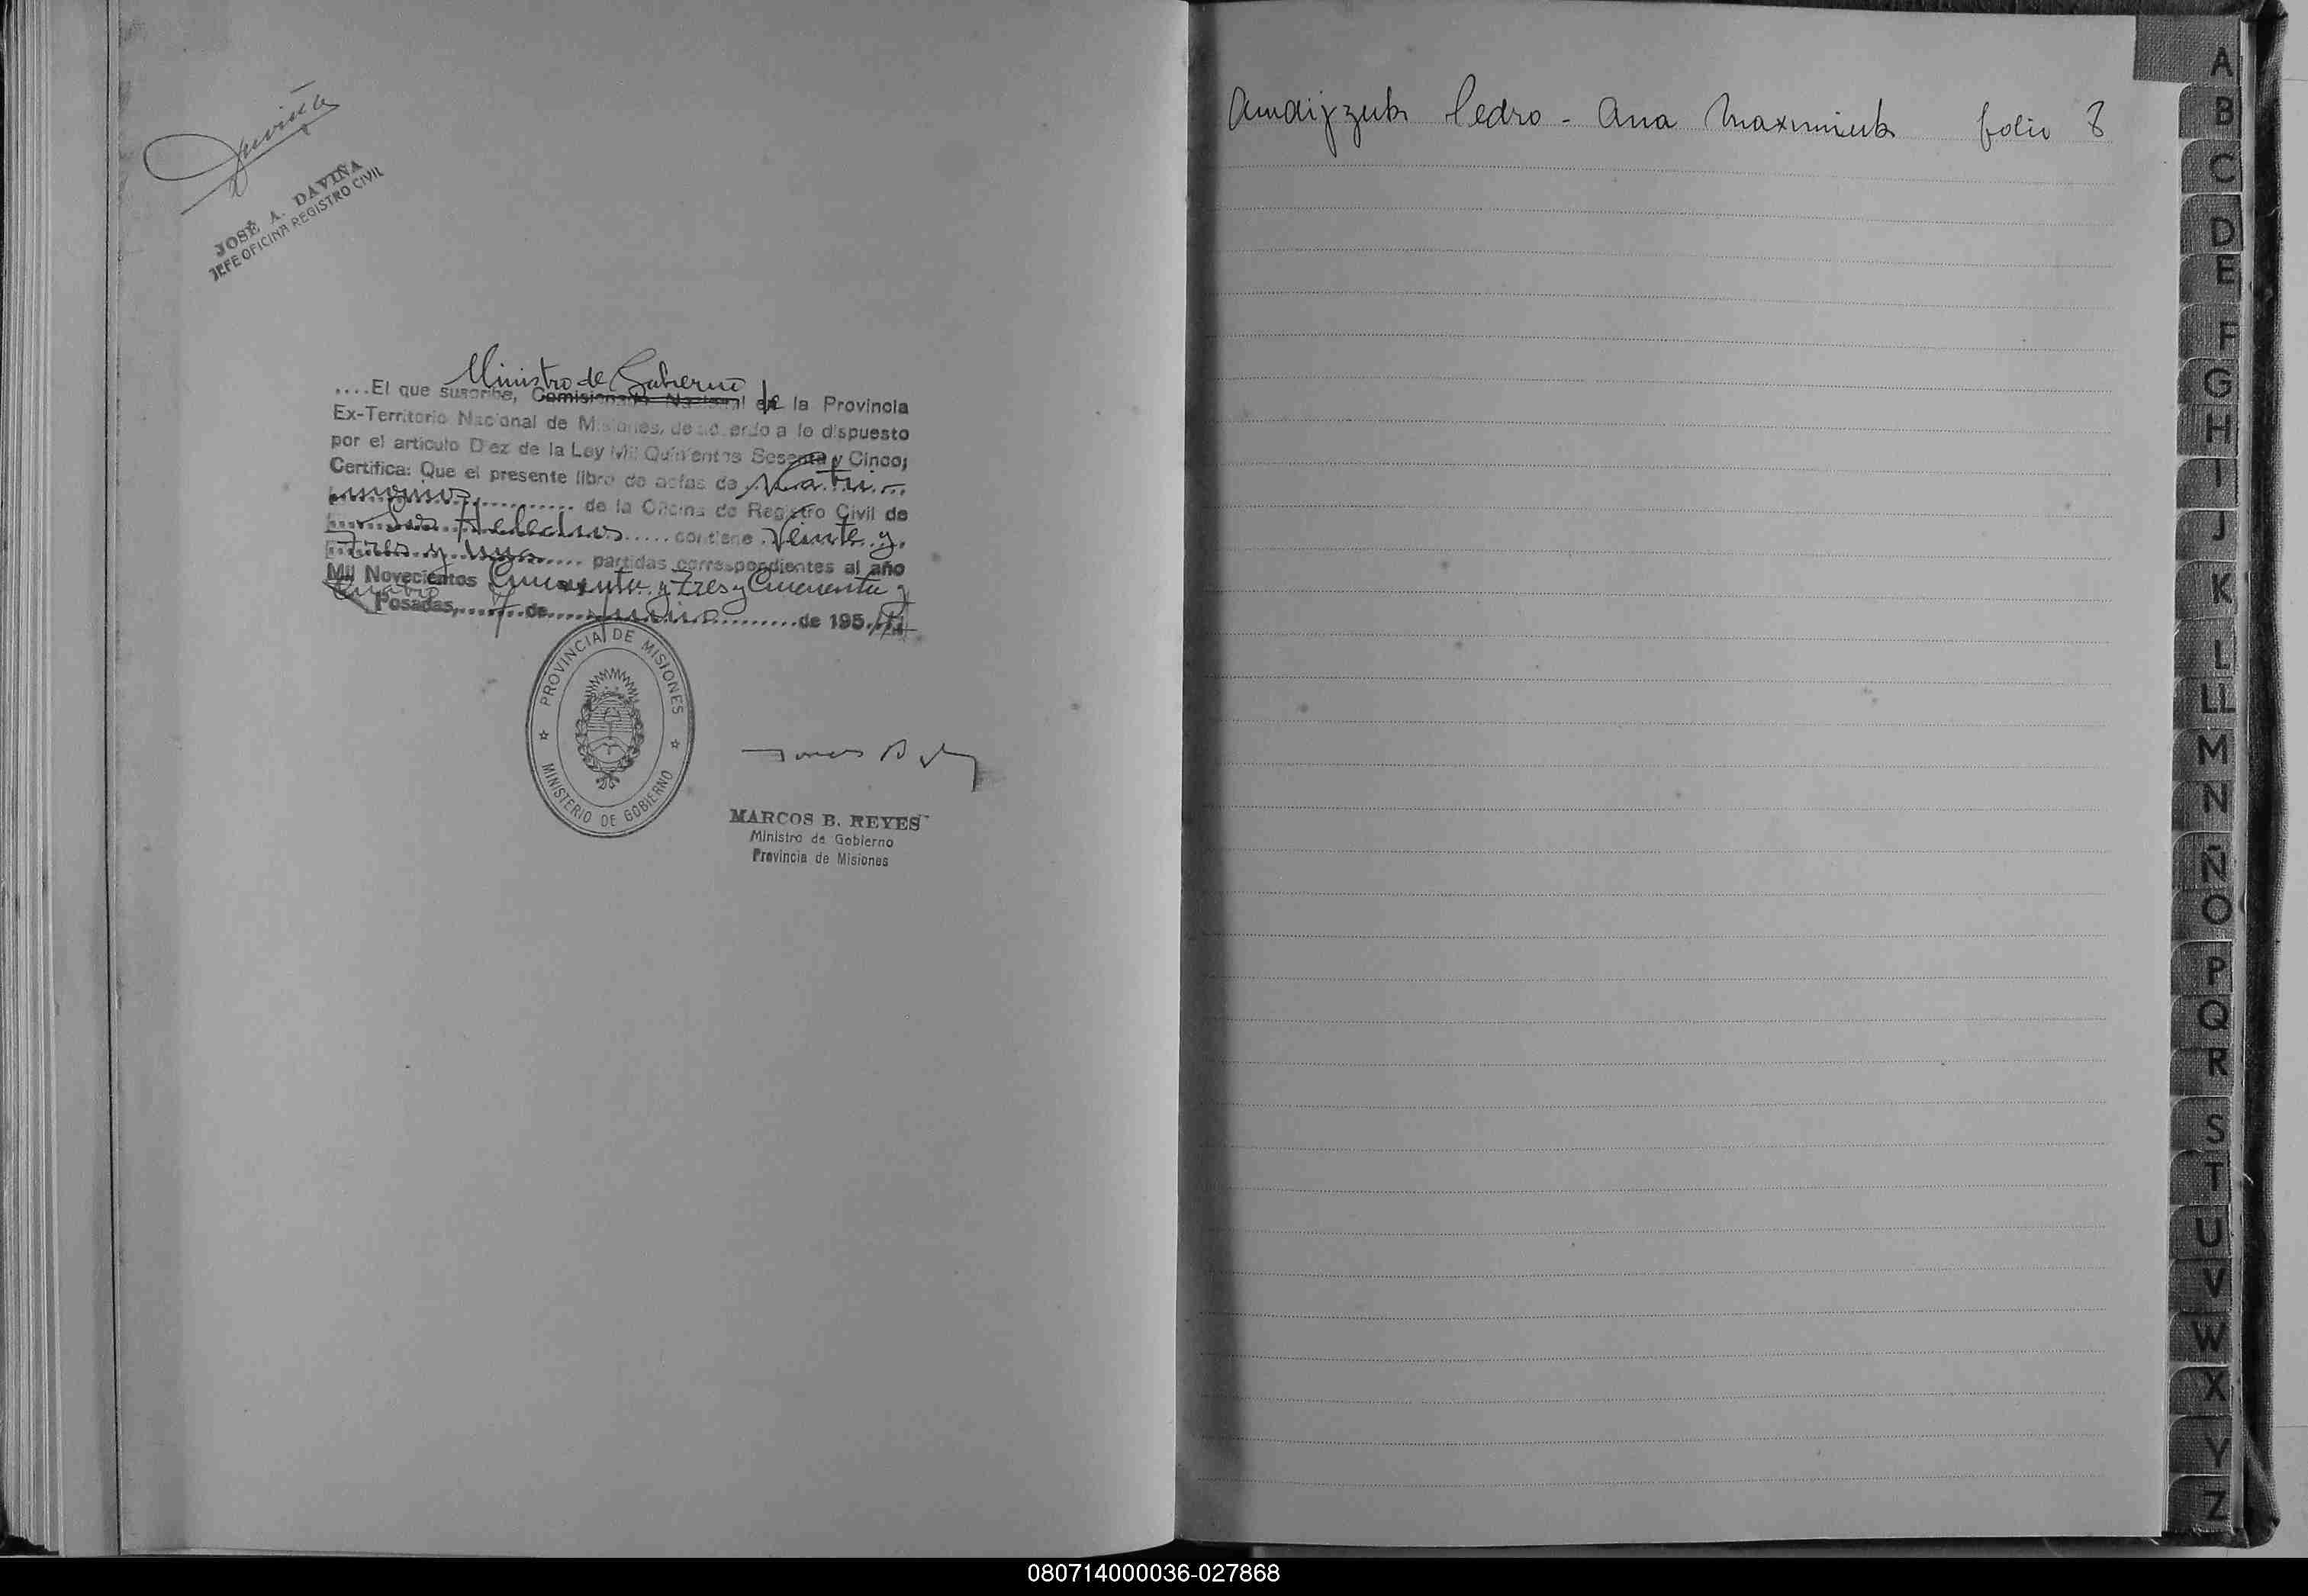 Daviña
JOSÉ A. DAVIÑA
JEFE OFICINA REGISTRO CIVIL
Ministro de Gobierno
....El que suscribe, Comisionado Nacional de la Provincia
Ex-Territorio Nacional de Misiones, de acuerdo a lo dispuesto
por el artículo Diez de la Ley Mil Quinientos Sesenta y Cinco;
Certifica: Que el presente libro de actas de Matri-
monios, de la Oficina de Registro Civil de
Los Helechos contiene Veinte y
tres y partidas correspondientes al año
Mil Novecientos Cincuenta y Tres y Cincuenta y
Cuatro
Posadas, 7 de Junio de 195
PROVINCIA DE MISIONES
MINISTERIO DE GOBIERNO
MARCOS B. REYES
Ministro de Gobierno
Provincia de Misiones
Pedro - Ana folio 8
A
B
C
D
E
F
G
H
I
J
K
L
LL
M
N
Ñ
O
P
Q
R
S
T
U
V
W
X
Y
Z
080714000036-027868